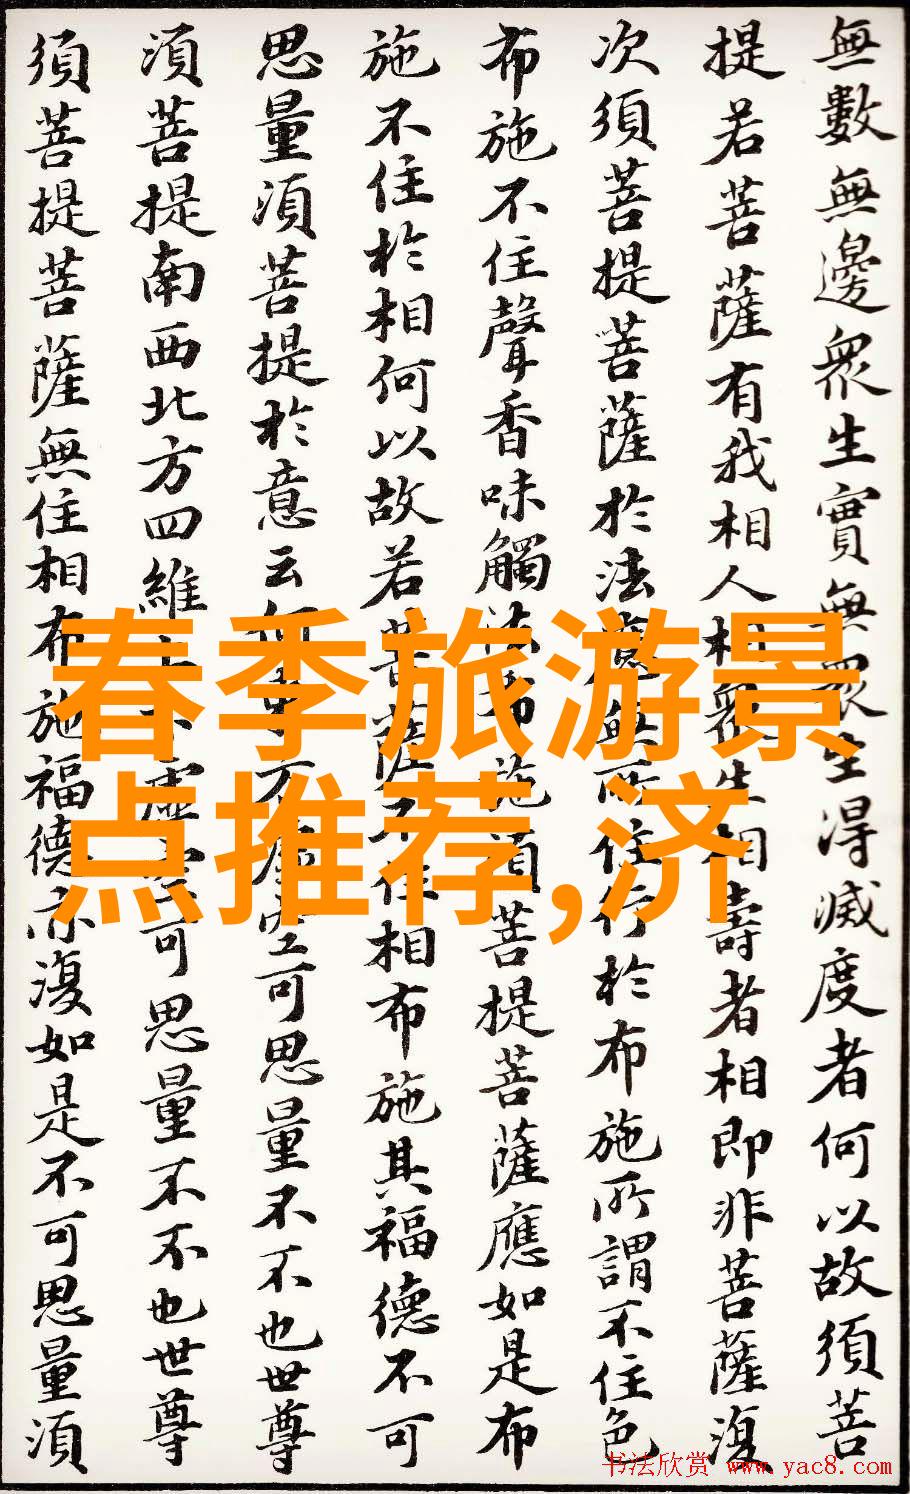 無數無邊眾生實無眾生得滅度者何以故須菩
提若菩薩有我相人相眾生相壽者相即非菩薩復
次須菩提菩薩於法應無所住行於布施所謂不住色
布施不住聲香味觸法布施須菩提菩薩應如是布
施不住於相何以故若菩薩不住相布施其福德不可
思量須菩提於意云何東方虛空可思量不不也世尊
須菩提南西北方四維上下虛空可思量不不也世尊
須菩提菩薩無住相布施福德亦復如是不可思量須
春季旅游景
点推荐,济
书法欣赏 www.yac8.com